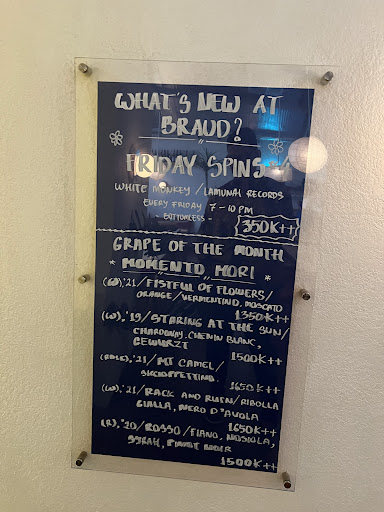 WHAT'S NEW AT
BRAUD?
FRIDAY SPINS
WHITE MONKEY / LAMUNAI RECORDS
EVERY FRIDAY 7-10 PM
- BOTTOMLESS -
350K++
GRAPE OF THE MONTH
* MOMENTO MORI *
'21/FISTFUL OF FLOWERS/
ORANGE/VERMENTINO, MOSCATO
1350K++
(W), '19/STARING AT THE SUN/
CHARDONAY, CHENIN BLANC,
GEWURZT
1500K++
(ROSE), '21/MT CAMEL/
SHCIOPPETTINO.
1650K++
'21/RACK AND RUEN/RIBOLLA
GIALLA, NERO D'AVOLA
1650K++
(R), '20/ROSSO/FIANO, NOSIOLA,
SYRAH, PINOT NOIR
1500K++